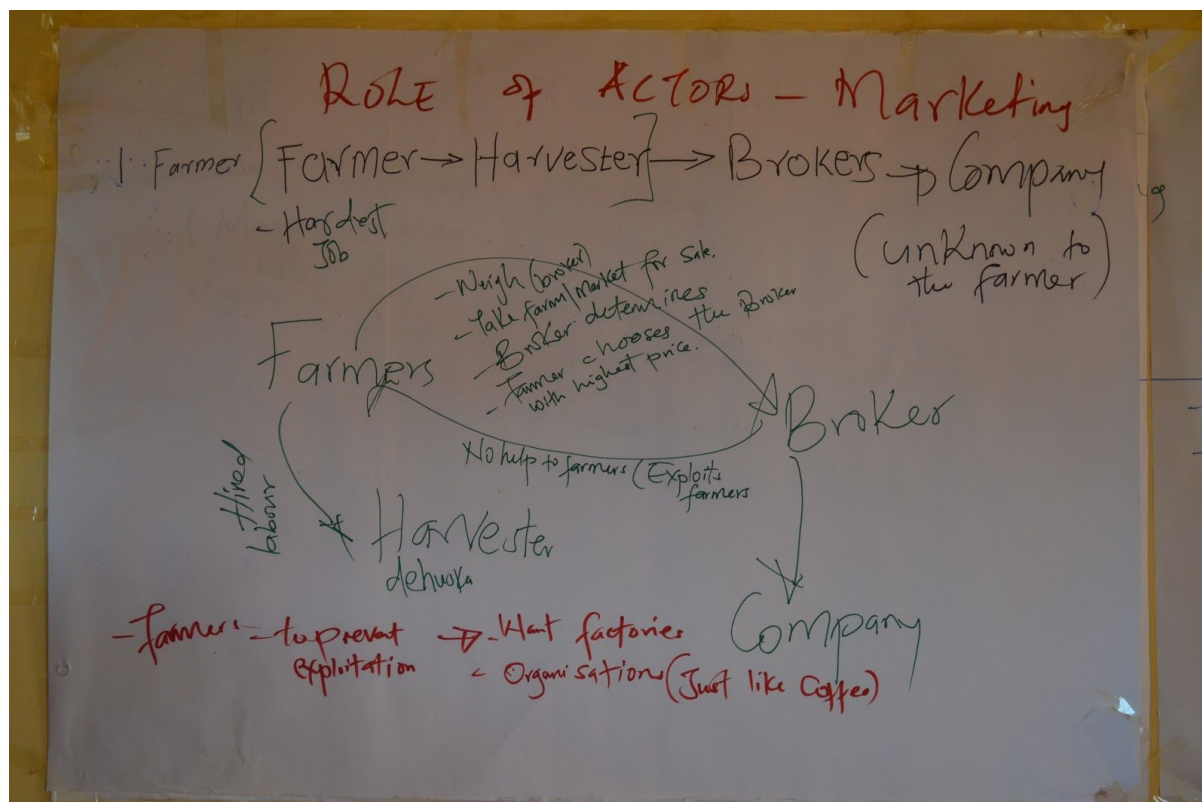 ROLE of ACTORS - Marketing
1. Farmer [Farmer → Harvester] → Brokers → Company
- Hardest
Job
(unknown to
the farmer)
- Weigh (broker)
- Take farm/market for sale.
- Broker determines
- Farmer chooses the Broker
with highest price.
Farmers
Broker
No help to farmers (Exploits
farmers
Hired
labour
Harvester
Company
- Farmers - to prevent → - Want factories
exploitation - Organisations (Just like Coffee)